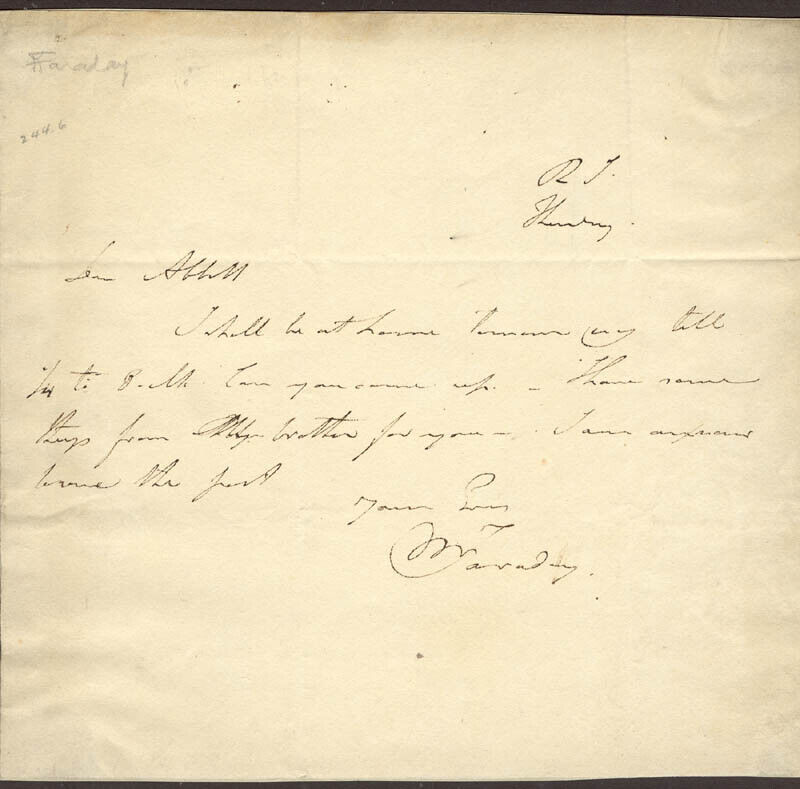 Faraday
244.6
R I.
Thursday.
Dear Abbott
I shall be at home Tomorrow evg till
1/4 to 8 oclk Can you come up. - I have some
things from brother for you - I am anxious
the post
Yours Ever
M Faraday.